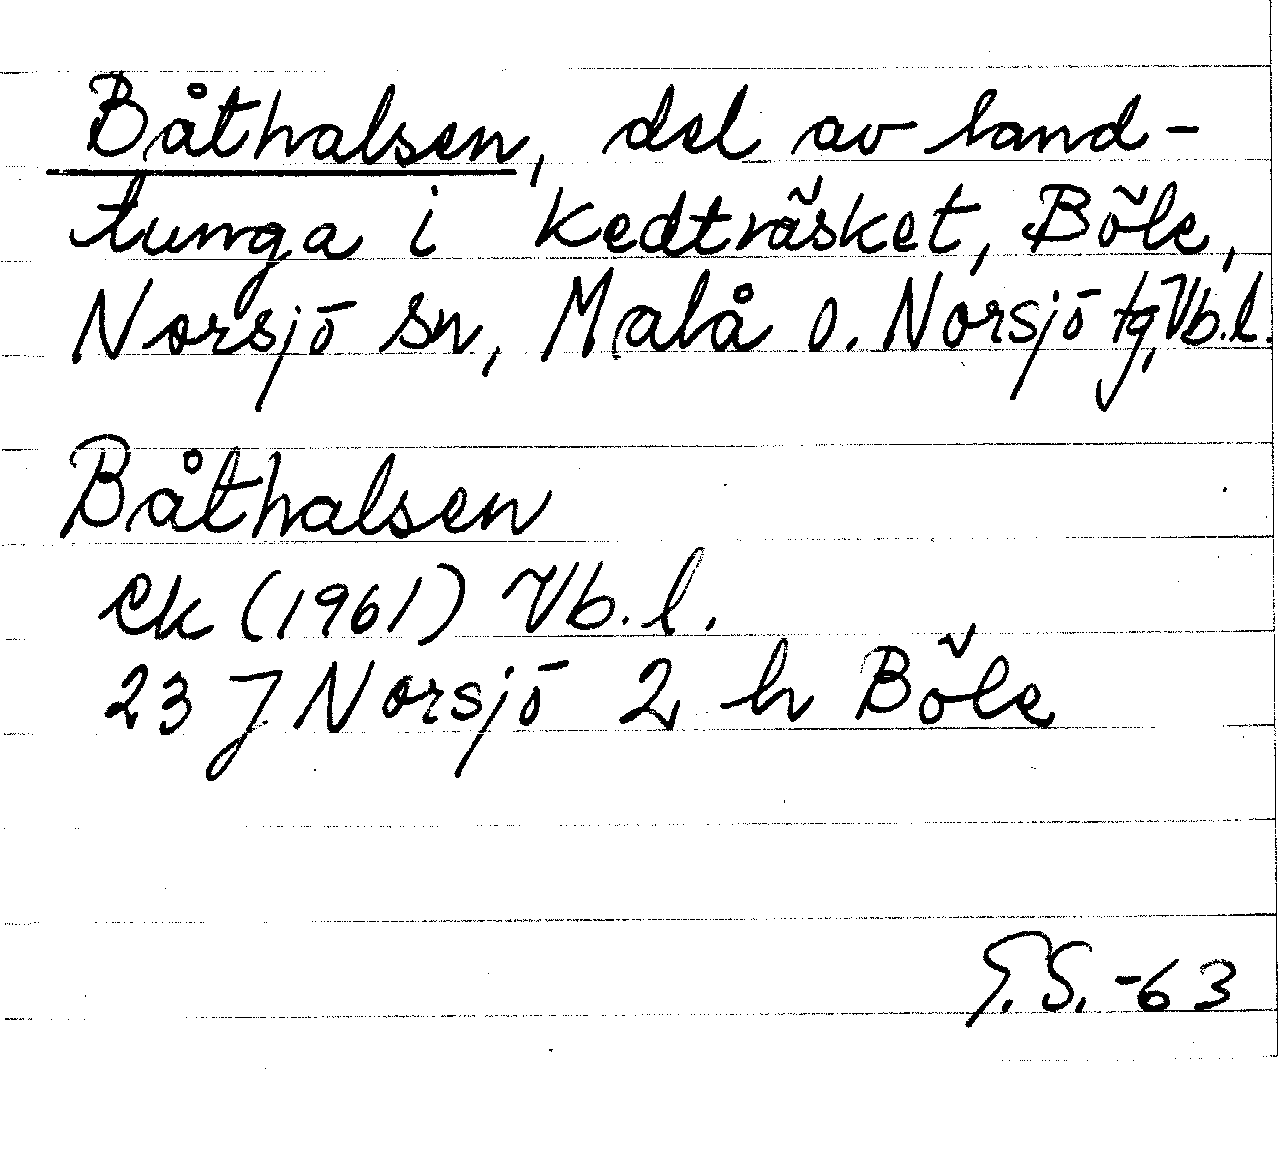 Båthalsen, del av land-
tunga i Kedträsket, Böle,
Norsjö sn, Malå o. Norsjö tg, Vb.l.
Båthalsen
ek (1961) Vb.l.
23 J Norsjö 2 h Böle
G.S. -63